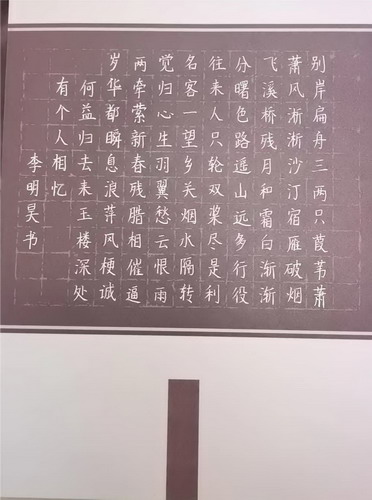 别岸扁舟三两只葭苇萧
萧风淅淅沙汀宿雁破烟
飞溪桥残月和霜白渐渐
分曙色路遥山远多行役
往来人只轮双桨尽是利
名客一望乡关烟水隔转
觉归心生羽翼愁云恨雨
两牵萦新春残腊相催逼
岁华都瞬息浪萍风梗诚
何益归去来玉楼深处
有个人相忆
李明昊书